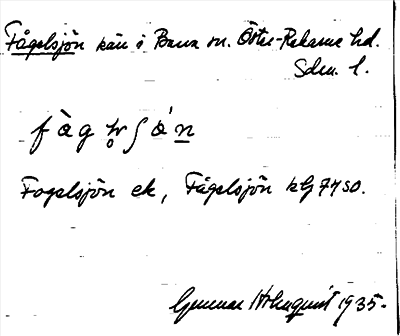 Fågelsjön kän i Barva sn. Öster-Rekarne hd.
Sdm. l.
Fogelsjön ek, Fågelsjön kG 7450.
Gunnar Holmquist 1935.